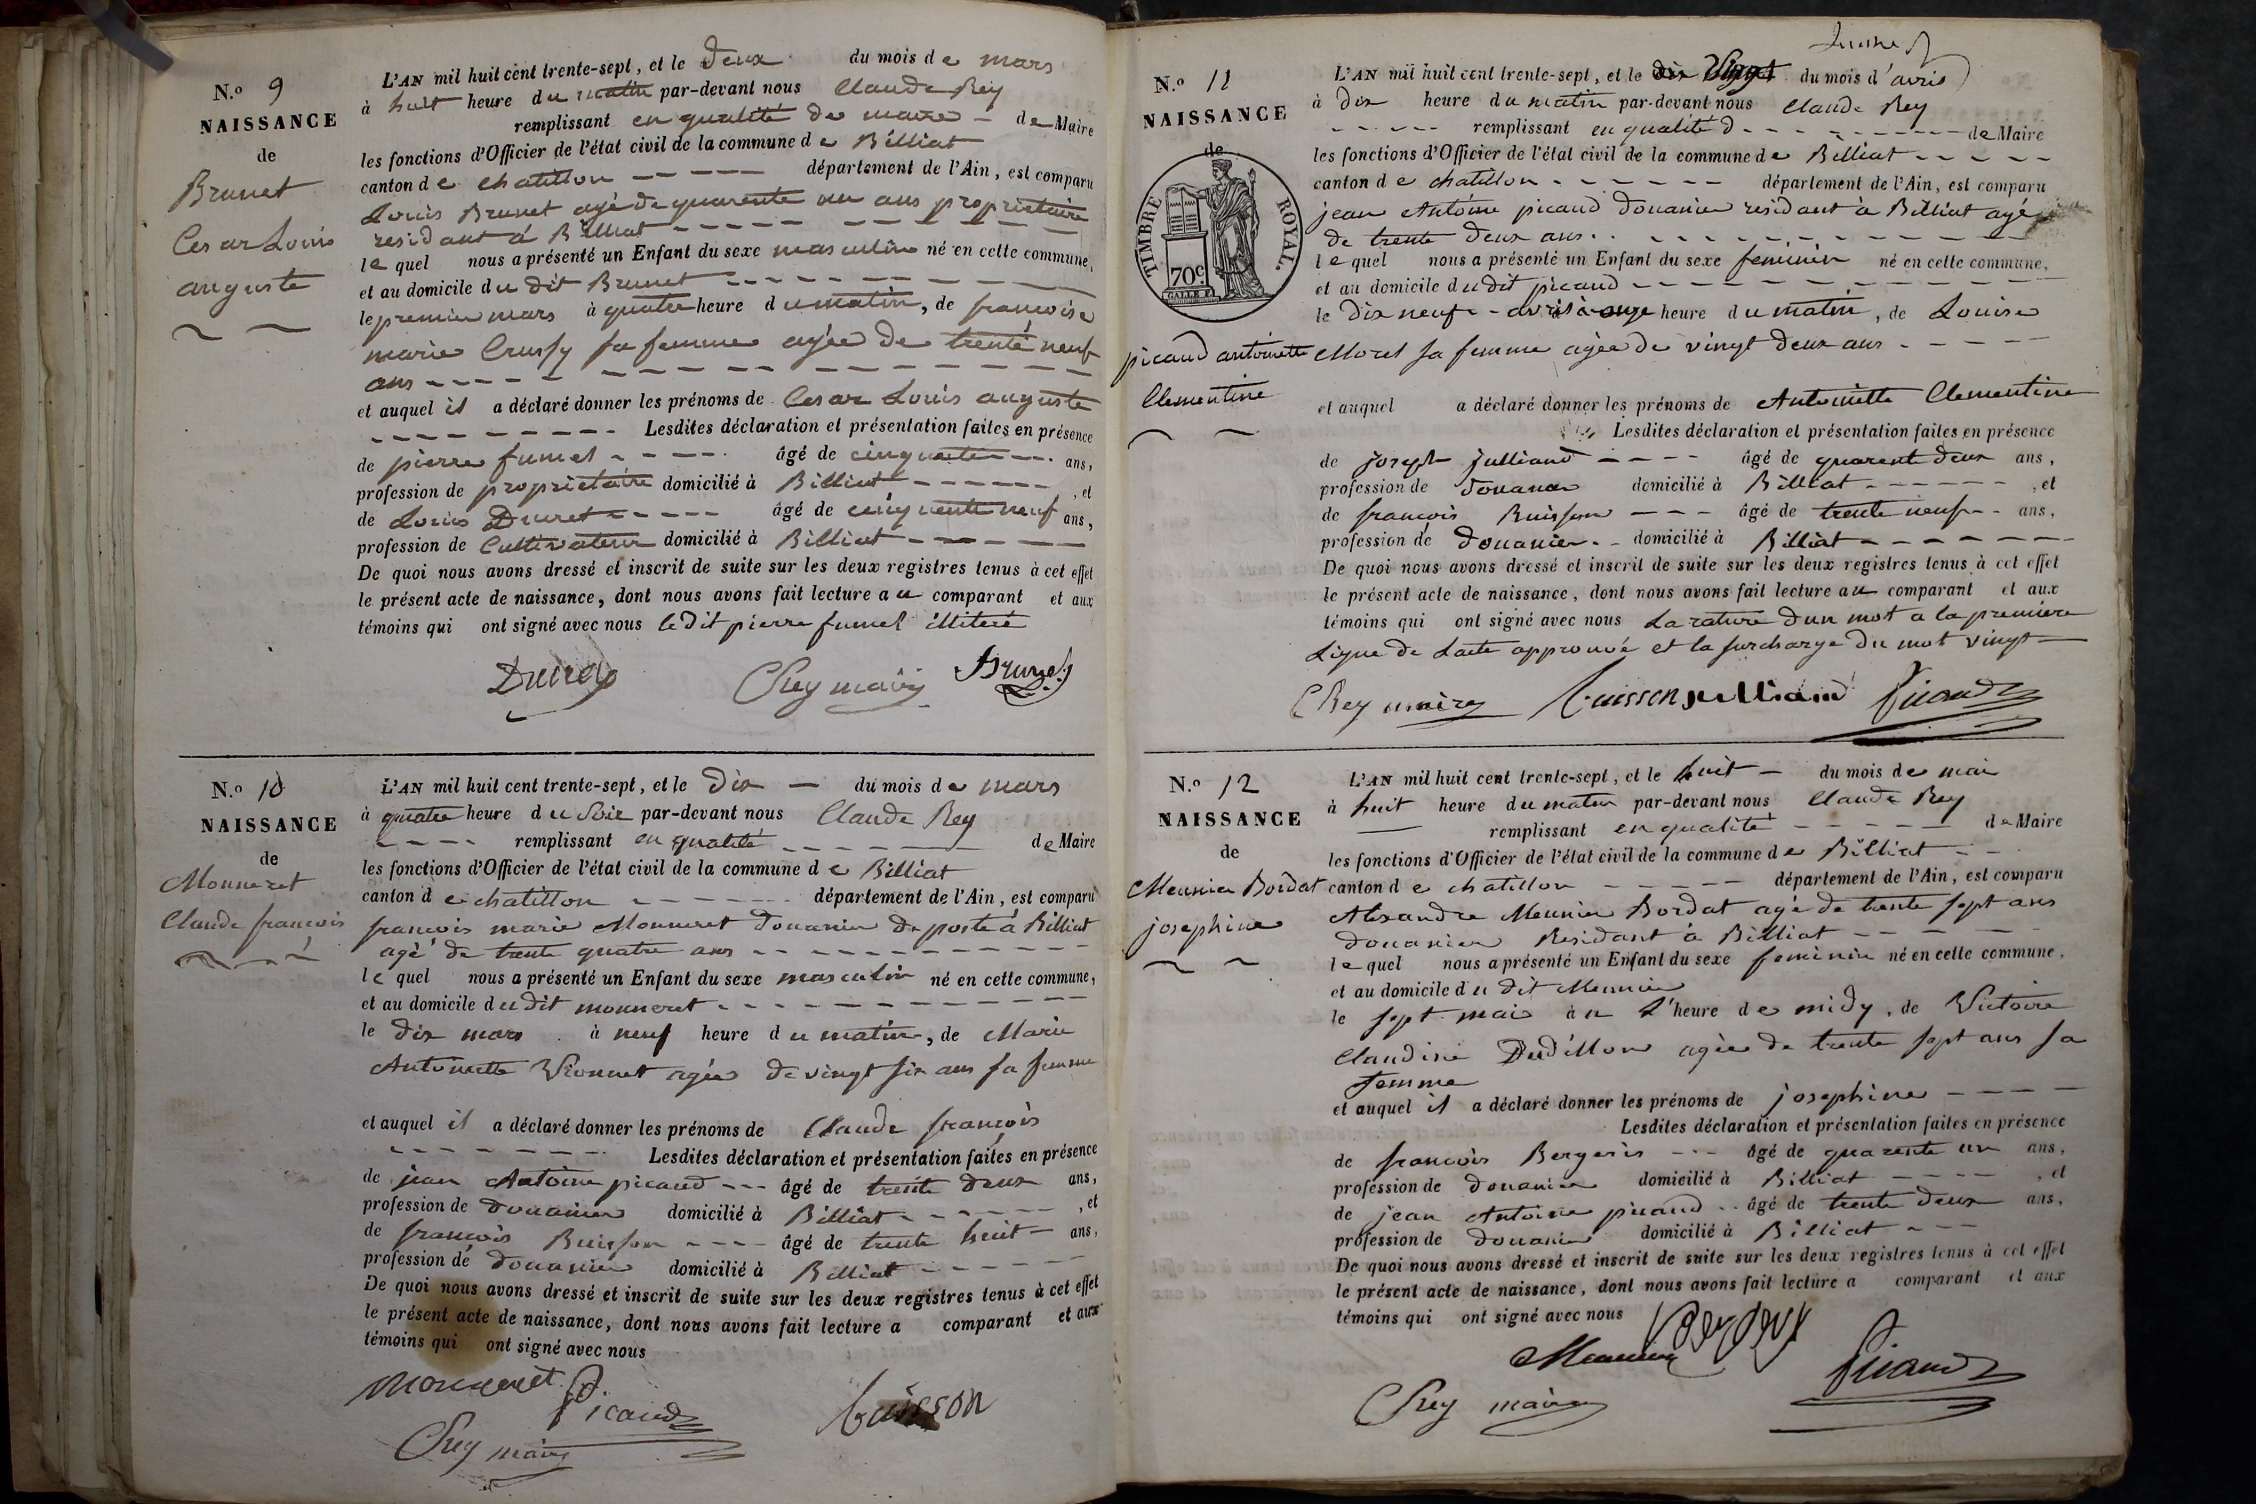 N.o 9
NAISSANCE
de
Brunet
Cesar Louis
auguste
L'AN mil huit cent trente-sept, et le Deux du mois de mars
à huit heure du matin par-devant nous Claude Rey
remplissant en qualité de maire - de Maire
les fonctions d'Officier de l'état civil de la commune de Billiat
canton de chatillon - - - - - département de l'Ain, est comparu
Louis Brunet agé de quarente un ans proprietaire
residant à Billiat - - - - - - - - - -
lequel nous a présenté un Enfant du sexe masculin né en cette commune,
et au domicile du dit Brunet - - - - - - - -
le premier mars à quatre heure du matin, de francoise
marie Crussy sa femme agée de trente neuf
ans - - - - - - - - - - - - -
et auquel il a déclaré donner les prénoms de Cesar Louis auguste
- - - - - - - - - - Lesdites déclaration et présentation faites en présence
de pierre fumel - - - - - âgé de cinquante - - - ans,
profession de proprietaire domicilié à Billiat - - - - - - , et
de Louis Ducret - - - - - âgé de cinquante neuf ans,
profession de Cultivateur domicilié à Billiat - - - - - -
De quoi nous avons dressé et inscrit de suite sur les deux registres tenus à cet effet
le présent acte de naissance, dont nous avons fait lecture au comparant et aux
témoins qui ont signé avec nous le dit pierre fumel illiteré
Ducret CRey maire Brunet
N.o 10
NAISSANCE
de
Monneret
Claude francois
L'AN mil huit cent trente-sept, et le Dix - du mois de mars
à quatre heure du Soir par-devant nous Claude Rey
- - - - remplissant en qualité - - - - - de Maire
les fonctions d'Officier de l'état civil de la commune de Billiat
canton de chatillon - - - - - - département de l'Ain, est comparu
francois marie Monneret Douanier de poste à Billiat
agé de trente quatre ans - - - - - - - - - -
lequel nous a présenté un Enfant du sexe masculin né en cette commune,
et au domicile du dit monneret - - - - - - - - - - -
le dix mars à neuf heure du matin, de Marie
Antoinette Vionnet agée de vingt six ans sa femme
et auquel il a déclaré donner les prénoms de Claude francois
- - - - - - - - Lesdites déclaration et présentation faites en présence
de jean Antoine picaud - - - âgé de trente deux ans,
profession de douanier domicilié à Billiat - - - - - - , et
de francois Buisson - - - - âgé de trente huit - ans,
profession de douanier domicilié à Billiat - - - - - -
De quoi nous avons dressé et inscrit de suite sur les deux registres tenus à cet effet
le présent acte de naissance, dont nous avons fait lecture a comparant et aux
témoins qui ont signé avec nous
monneret Picaud buisson
CRey maire
N.o 11
NAISSANCE
de
TIMBRE ROYAL.
70c
picaud antoinette
Clementine
L'AN mil huit cent trente-sept, et le dix Vingt du mois d'avril
à dix heure du matin par-devant nous Claude Rey
- - - - - remplissant en qualité d - - - - - - - - de Maire
les fonctions d'Officier de l'état civil de la commune de Billiat - - - - -
canton de chatillon - - - - - - - département de l'Ain, est comparu
jean Antoine picaud douanier residant à Billiat agé
de trente deux ans - - - - - - - - - - - -
lequel nous a présenté un Enfant du sexe feminin né en cette commune,
et au domicile du dit picaud - - - - - - - - - - -
le dix neuf - avril à onze heure du matin, de Louise
Morel sa femme agée de vingt deux ans - - - - -
et auquel a déclaré donner les prénoms de Antoinette Clementine
Lesdites déclaration et présentation faites en présence
de joseph julliand - - - - âgé de quarente deux ans,
profession de douanier domicilié à Billiat - - - - - - , et
de francois Buisson - - - âgé de trente neuf - - ans,
profession de douanier - - domicilié à Billiat - - - - - - -
De quoi nous avons dressé et inscrit de suite sur les deux registres tenus à cet effet
le présent acte de naissance, dont nous avons fait lecture au comparant et aux
témoins qui ont signé avec nous La rature d'un mot a la premiere
Ligne de Lacte approuvé et la surcharge du mot vingt
CRey maire buisson julliand Picaud
N.o 12
NAISSANCE
de
Meunier Bordat
josephine
L'AN mil huit cent trente-sept, et le huit - du mois de mai
à huit heure du matin par-devant nous Claude Rey
remplissant en qualité - - - - - de Maire
les fonctions d'Officier de l'état civil de la commune de Billiat - -
canton de chatillon - - - - - département de l'Ain, est comparu
Alexandre Meunier Bordat agé de trente sept ans
douanier Residant à Billiat - - - - -
lequel nous a présenté un Enfant du sexe feminin né en cette commune,
et au domicile du dit Meunier
le sept mai à u L'heure de midy, de Victoire
Claudine Dudillon agée de trente sept ans sa
femme
et auquel il a déclaré donner les prénoms de josephine - - - -
Lesdites déclaration et présentation faites en présence
de francois Bergeris - - - âgé de quarente un ans,
profession de douanier domicilié à Billiat - - - - , et
de jean Antoine picaud - - âgé de trente deux ans,
profession de douanier domicilié à Billiat - - -
De quoi nous avons dressé et inscrit de suite sur les deux registres tenus à cet effet
le présent acte de naissance, dont nous avons fait lecture a comparant et aux
témoins qui ont signé avec nous
Meunier
CRey maire Picaud